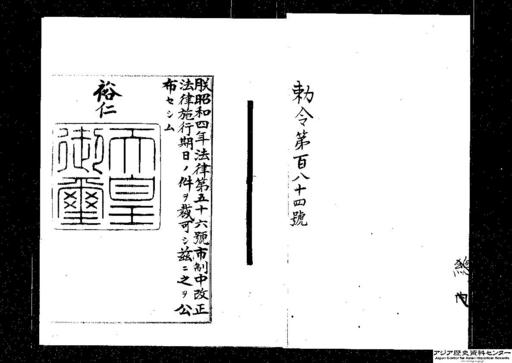 勅令第百八十四號
朕昭和四年法律第五十六號市制中改正
法律施行期日ノ件ヲ裁可シ茲ニ之ヲ公
布セシム
裕仁
天皇
御璽
内
アジア歴史資料センター
Japan Center for Asian Historical Records